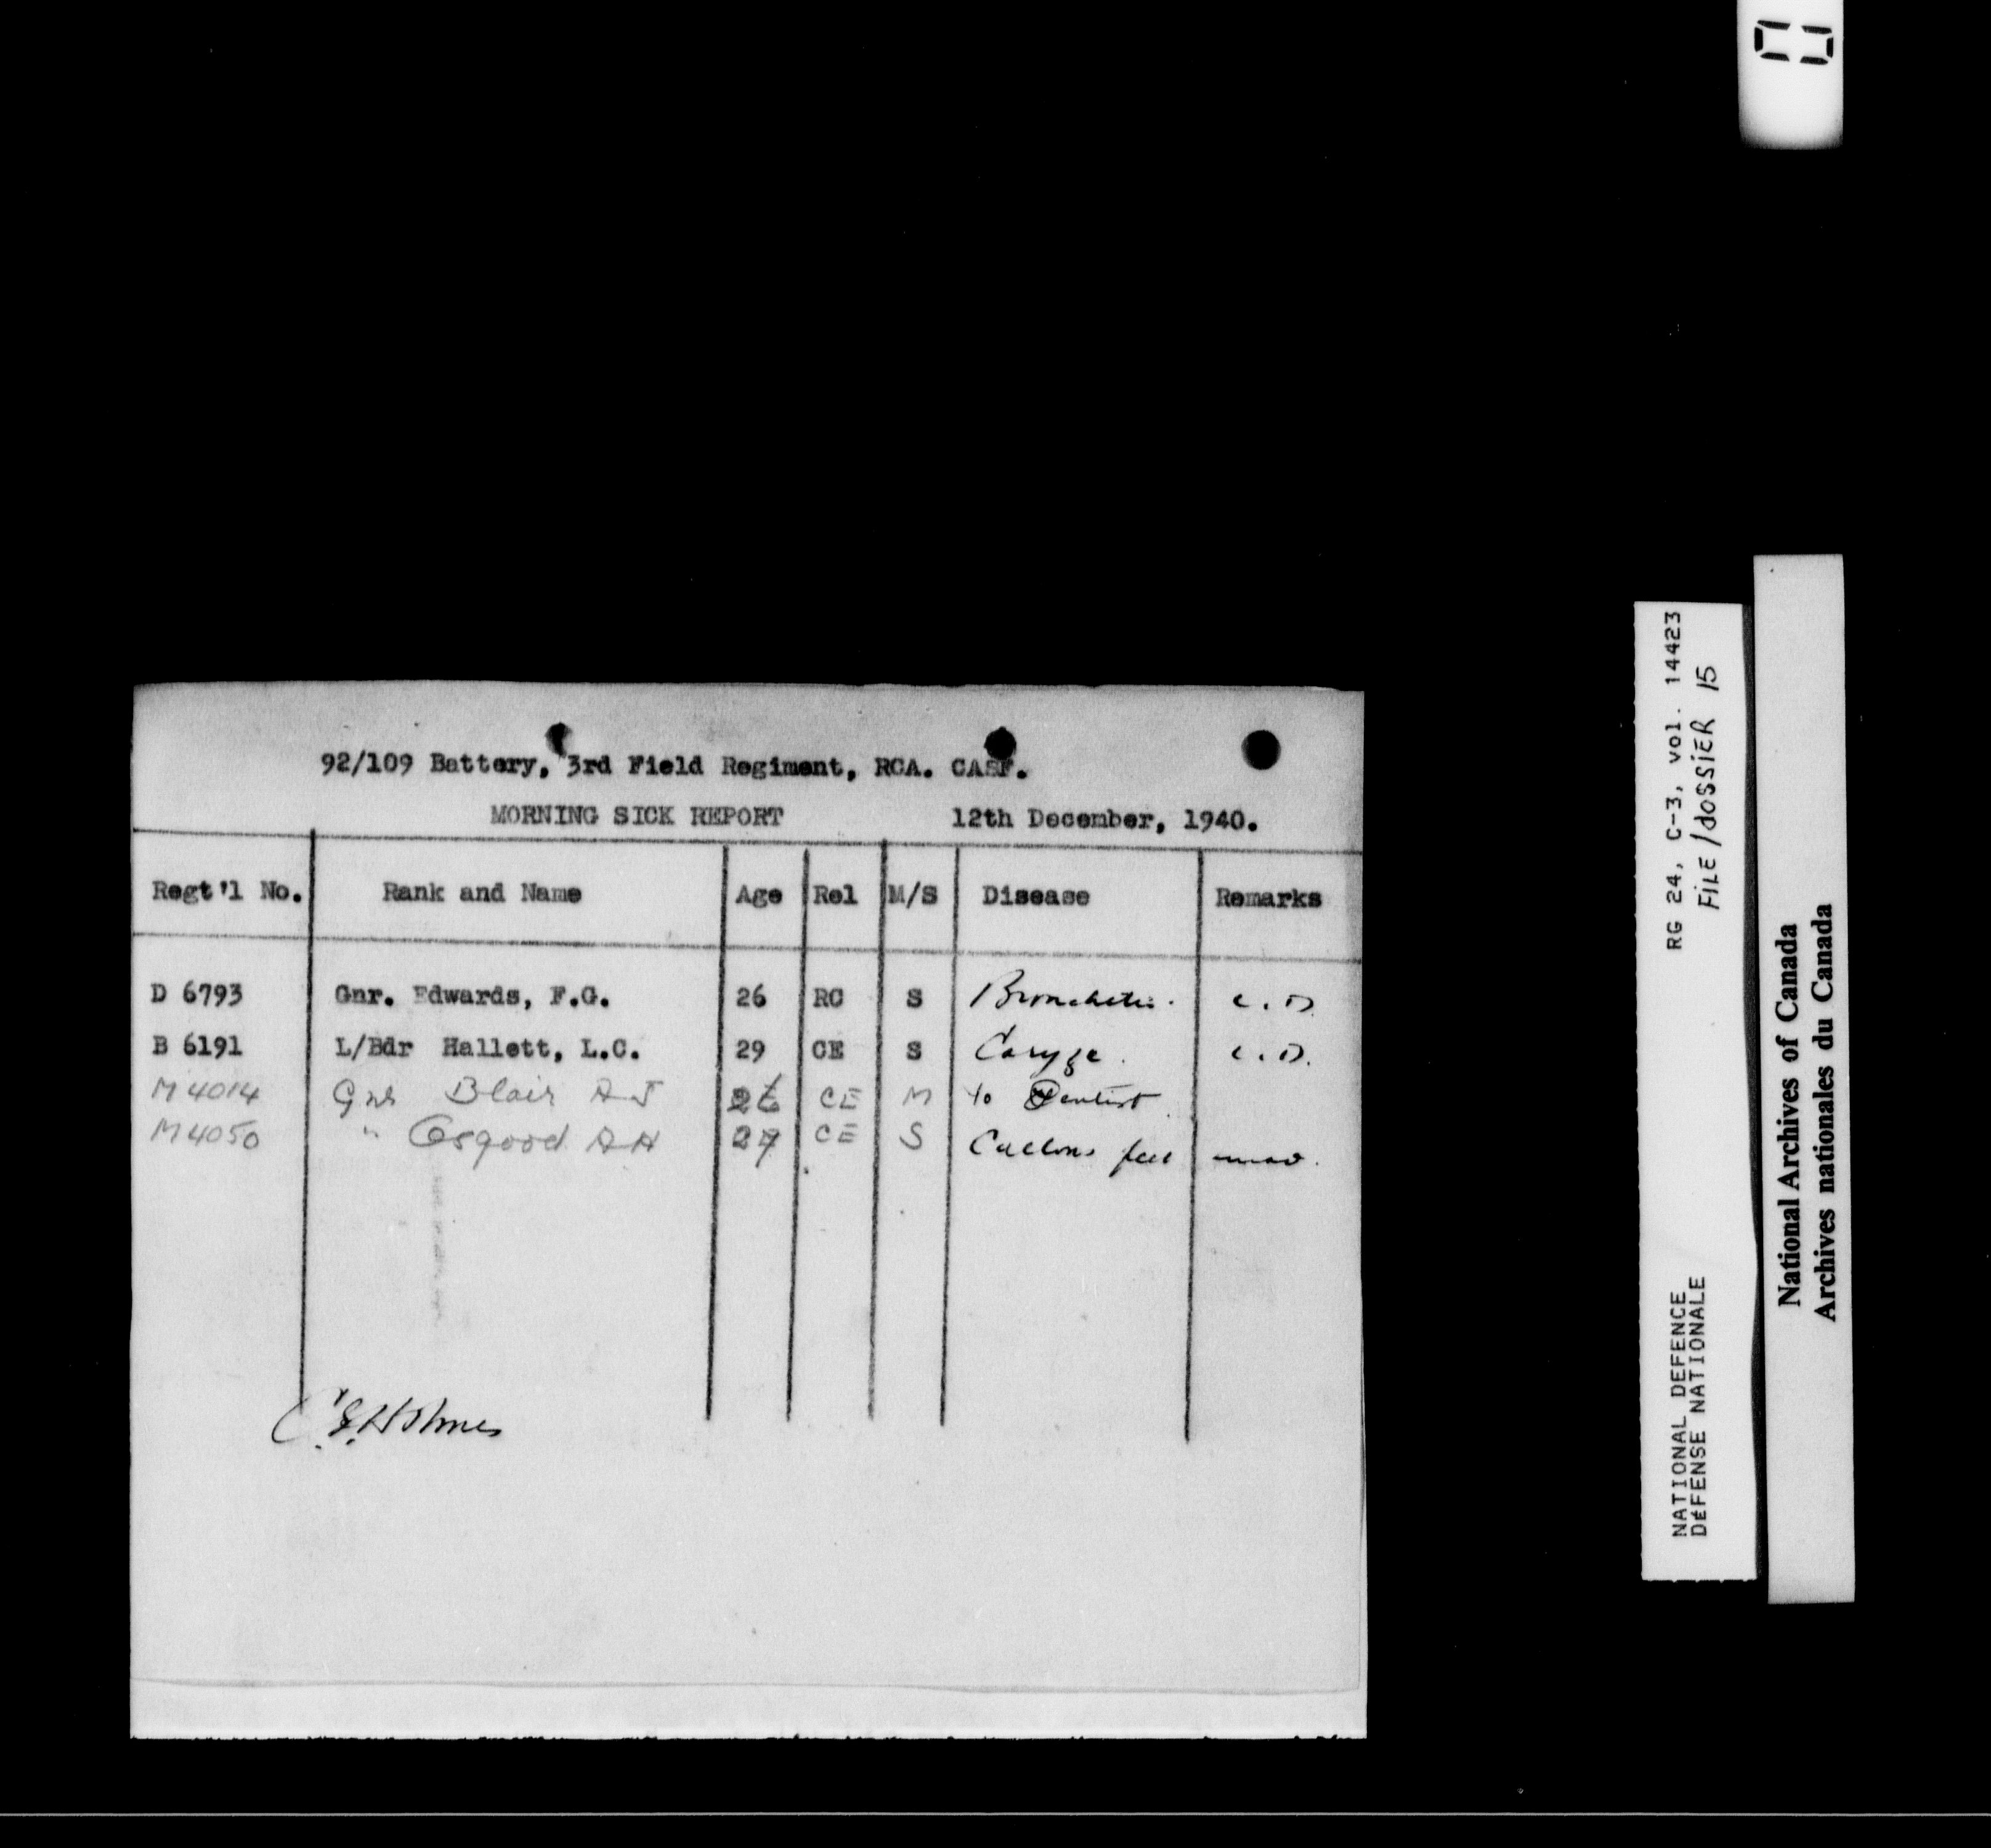 92/109 Battery, 3rd Field Regiment, RCA. CASF.
MORNING SICK REPORT 12th December, 1940.
Regt'l No. Rank and Name Age Rel M/S Disease Remarks
D 6793 Gnr. Edwards, F.G. 26 RC S Bronchitis. C.D.
B 6191 L/Bdr Hallett, L.C. 29 CE S Coryza. C.D.
M 4014 Gnr Blair A J 26 CE M to Dentist
M 4050 " Osgood A H 27 CE S Callous feet
C. G. Holmes
RG 24, C-3, vol. 14423
FILE/dOSSiER 15
NATIONAL DEFENCE
DÉFENSE NATIONALE
National Archives of Canada
Archives nationales du Canada